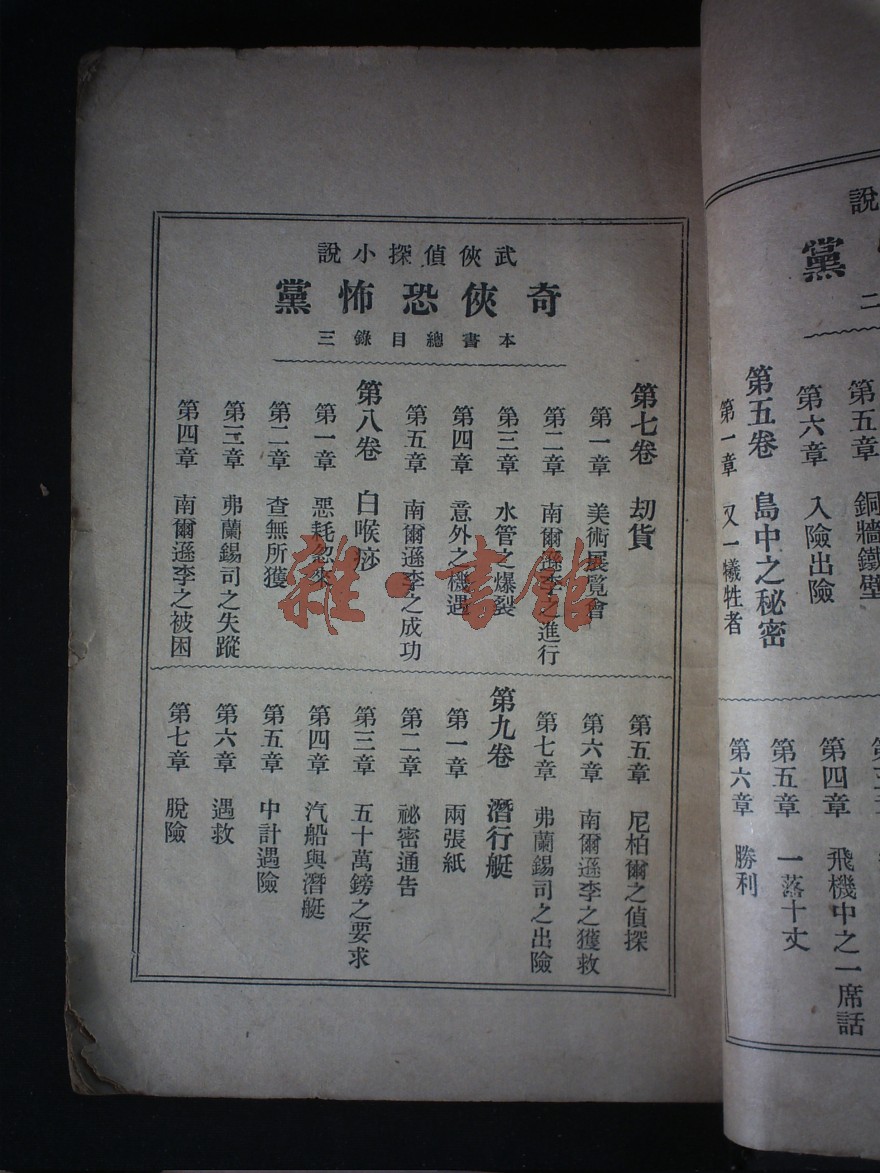 說
黨
二
第五章 銅牆鐵壁
第六章 入險出險
第五卷 島中之秘密
第一章 又一犧牲者
第四章 飛機中之一席話
第五章 一落十丈
第六章 勝利
武俠偵探小說
奇俠恐怖黨
本書總目錄三
第七卷 刧貨
第一章 美術展覽會
第二章 南爾遜李之進行
第三章 水管之爆裂
第四章 意外之機遇
第五章 南爾遜李之成功
第八卷 白喉痧
第一章 惡耗忽來
第二章 查無所獲
第三章 弗蘭錫司之失蹤
第四章 南爾遜李之被困
第五章 尼柏爾之偵探
第六章 南爾遜李之獲救
第七章 弗蘭錫司之出險
第九卷 潛行艇
第一章 兩張紙
第二章 祕密通告
第三章 五十萬鎊之要求
第四章 汽船與潛艇
第五章 中計遇險
第六章 遇救
第七章 脫險
雜·書館